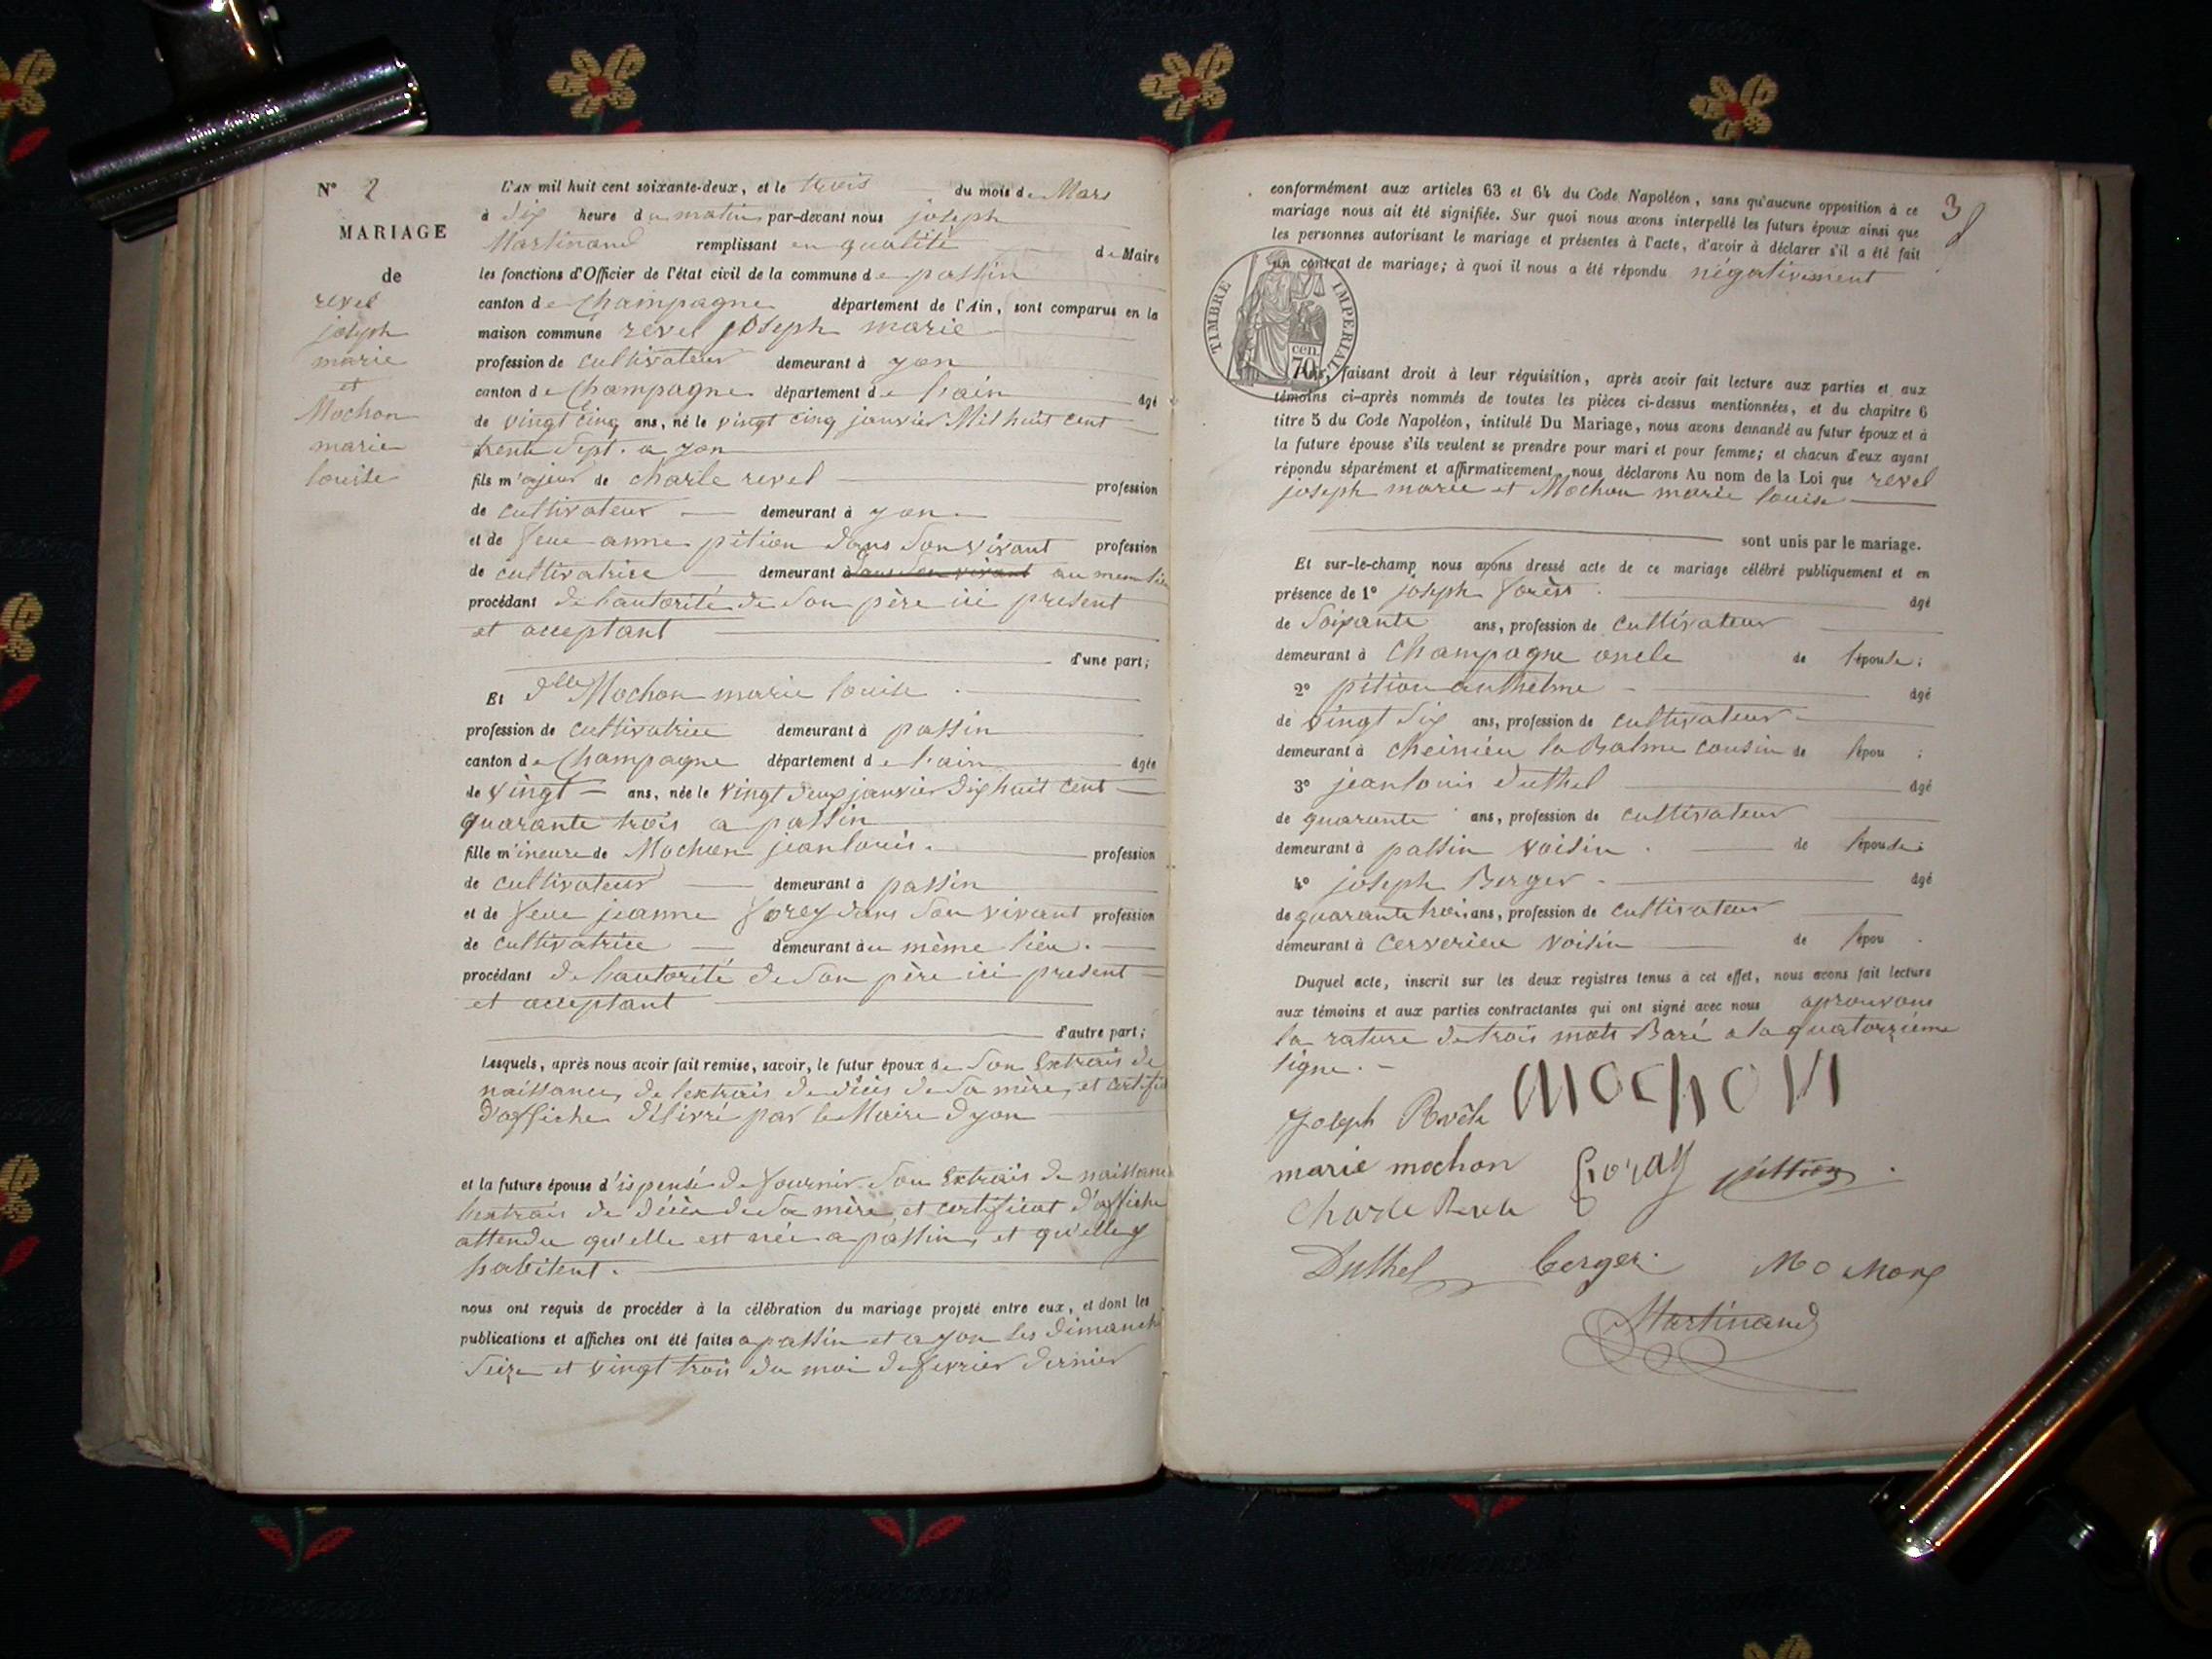 N° 2
MARIAGE
de
revel
joseph
marie
et
Mochon
marie
louise
L'AN mil huit cent soixante-deux, et le trois du mois de Mars
à dix heure du matin par-devant nous joseph
Martinand remplissant en qualité de Maire
les fonctions d'Officier de l'état civil de la commune de passin
canton de Champagne département de l'Ain, sont comparus en la
maison commune revel joseph marie
profession de cultivateur demeurant à yon
canton de Champagne département de l'ain âgé
de vingt cinq ans, né le vingt cinq janvier Mil huit cent
trente sept. a yon
fils majeur de charle revel profession
de cultivateur demeurant à yon
et de feue anne pition dans son vivant profession
de cultivatrice demeurant à dans son vivant au meme lieu
procédant de l'autorité de son père ici present
et acceptant
d'une part;
Et dlle Mochon marie louise
profession de cultivatrice demeurant à passin
canton de Champagne département de l'ain âgée
de vingt ans, née le vingt deux janvier dix huit cent
quarante trois a passin
fille mineure de Mochon jean louis. profession
de cultivateur demeurant à passin
et de feue jeanne forey dans son vivant profession
de cultivatrice demeurant au même lieu.
procédant de l'autorité de son père ici present
et acceptant
d'autre part;
Lesquels, après nous avoir fait remise, savoir, le futur époux de son Extrais de
naissance, de lextrais de décès de sa mère, et certifi
d'affiche délivré par le Maire dyon
et la future épouse d'ispensé de fournir son Extrais de naissance
lextrais de décès de sa mère, et certificat d'affiche
attendu qu'elle est née a passin, et qu'elle y
habitent.
nous ont requis de procéder à la célébration du mariage projeté entre eux, et dont les
publications et affiches ont été faites a passin et a yon les dimanche
seize et vingt trois du moi de fevrier dernier
3
conformément aux articles 63 et 64 du Code Napoléon, sans qu'aucune opposition à ce
mariage nous ait été signifiée. Sur quoi nous avons interpellé les futurs époux ainsi que
les personnes autorisant le mariage et présentes à l'acte, d'avoir à déclarer s'il a été fait
un contrat de mariage; à quoi il nous a été répondu négativement
TIMBRE IMPERIAL
70 cen.
faisant droit à leur réquisition, après avoir fait lecture aux parties et aux
témoins ci-après nommés de toutes les pièces ci-dessus mentionnées, et du chapitre 6
titre 5 du Code Napoléon, intitulé Du Mariage, nous avons demandé au futur époux et à
la future épouse s'ils veulent se prendre pour mari et pour femme; et chacun d'eux ayant
répondu séparément et affirmativement, nous déclarons Au nom de la Loi que revel
joseph marie et Mochon marie louise
sont unis par le mariage.
Et sur-le-champ nous avons dressé acte de ce mariage célébré publiquement et en
présence de 1° joseph âgé
de Soixante ans, profession de cultivateur
demeurant à Champagne oncle de lépouse;
2° pition anthelme âgé
de vingt six ans, profession de cultivateur
demeurant à cheinieu la Balme cousin de lépou ;
3° jean louis duthel âgé
de quarante ans, profession de cultivateur
demeurant à passin voisin de lépouse;
4° joseph Berger âgé
de quarante trois ans, profession de cultivateur
demeurant à cerverieu voisin de lépou .
Duquel acte, inscrit sur les deux registres tenus à cet effet, nous avons fait lecture
aux témoins et aux parties contractantes qui ont signé avec nous aprouvons
la rature de trois mots Baré a la quatorzième
ligne.
Joseph Mochon
marie mochon pittion
Charle
Duthel berger
Martinand